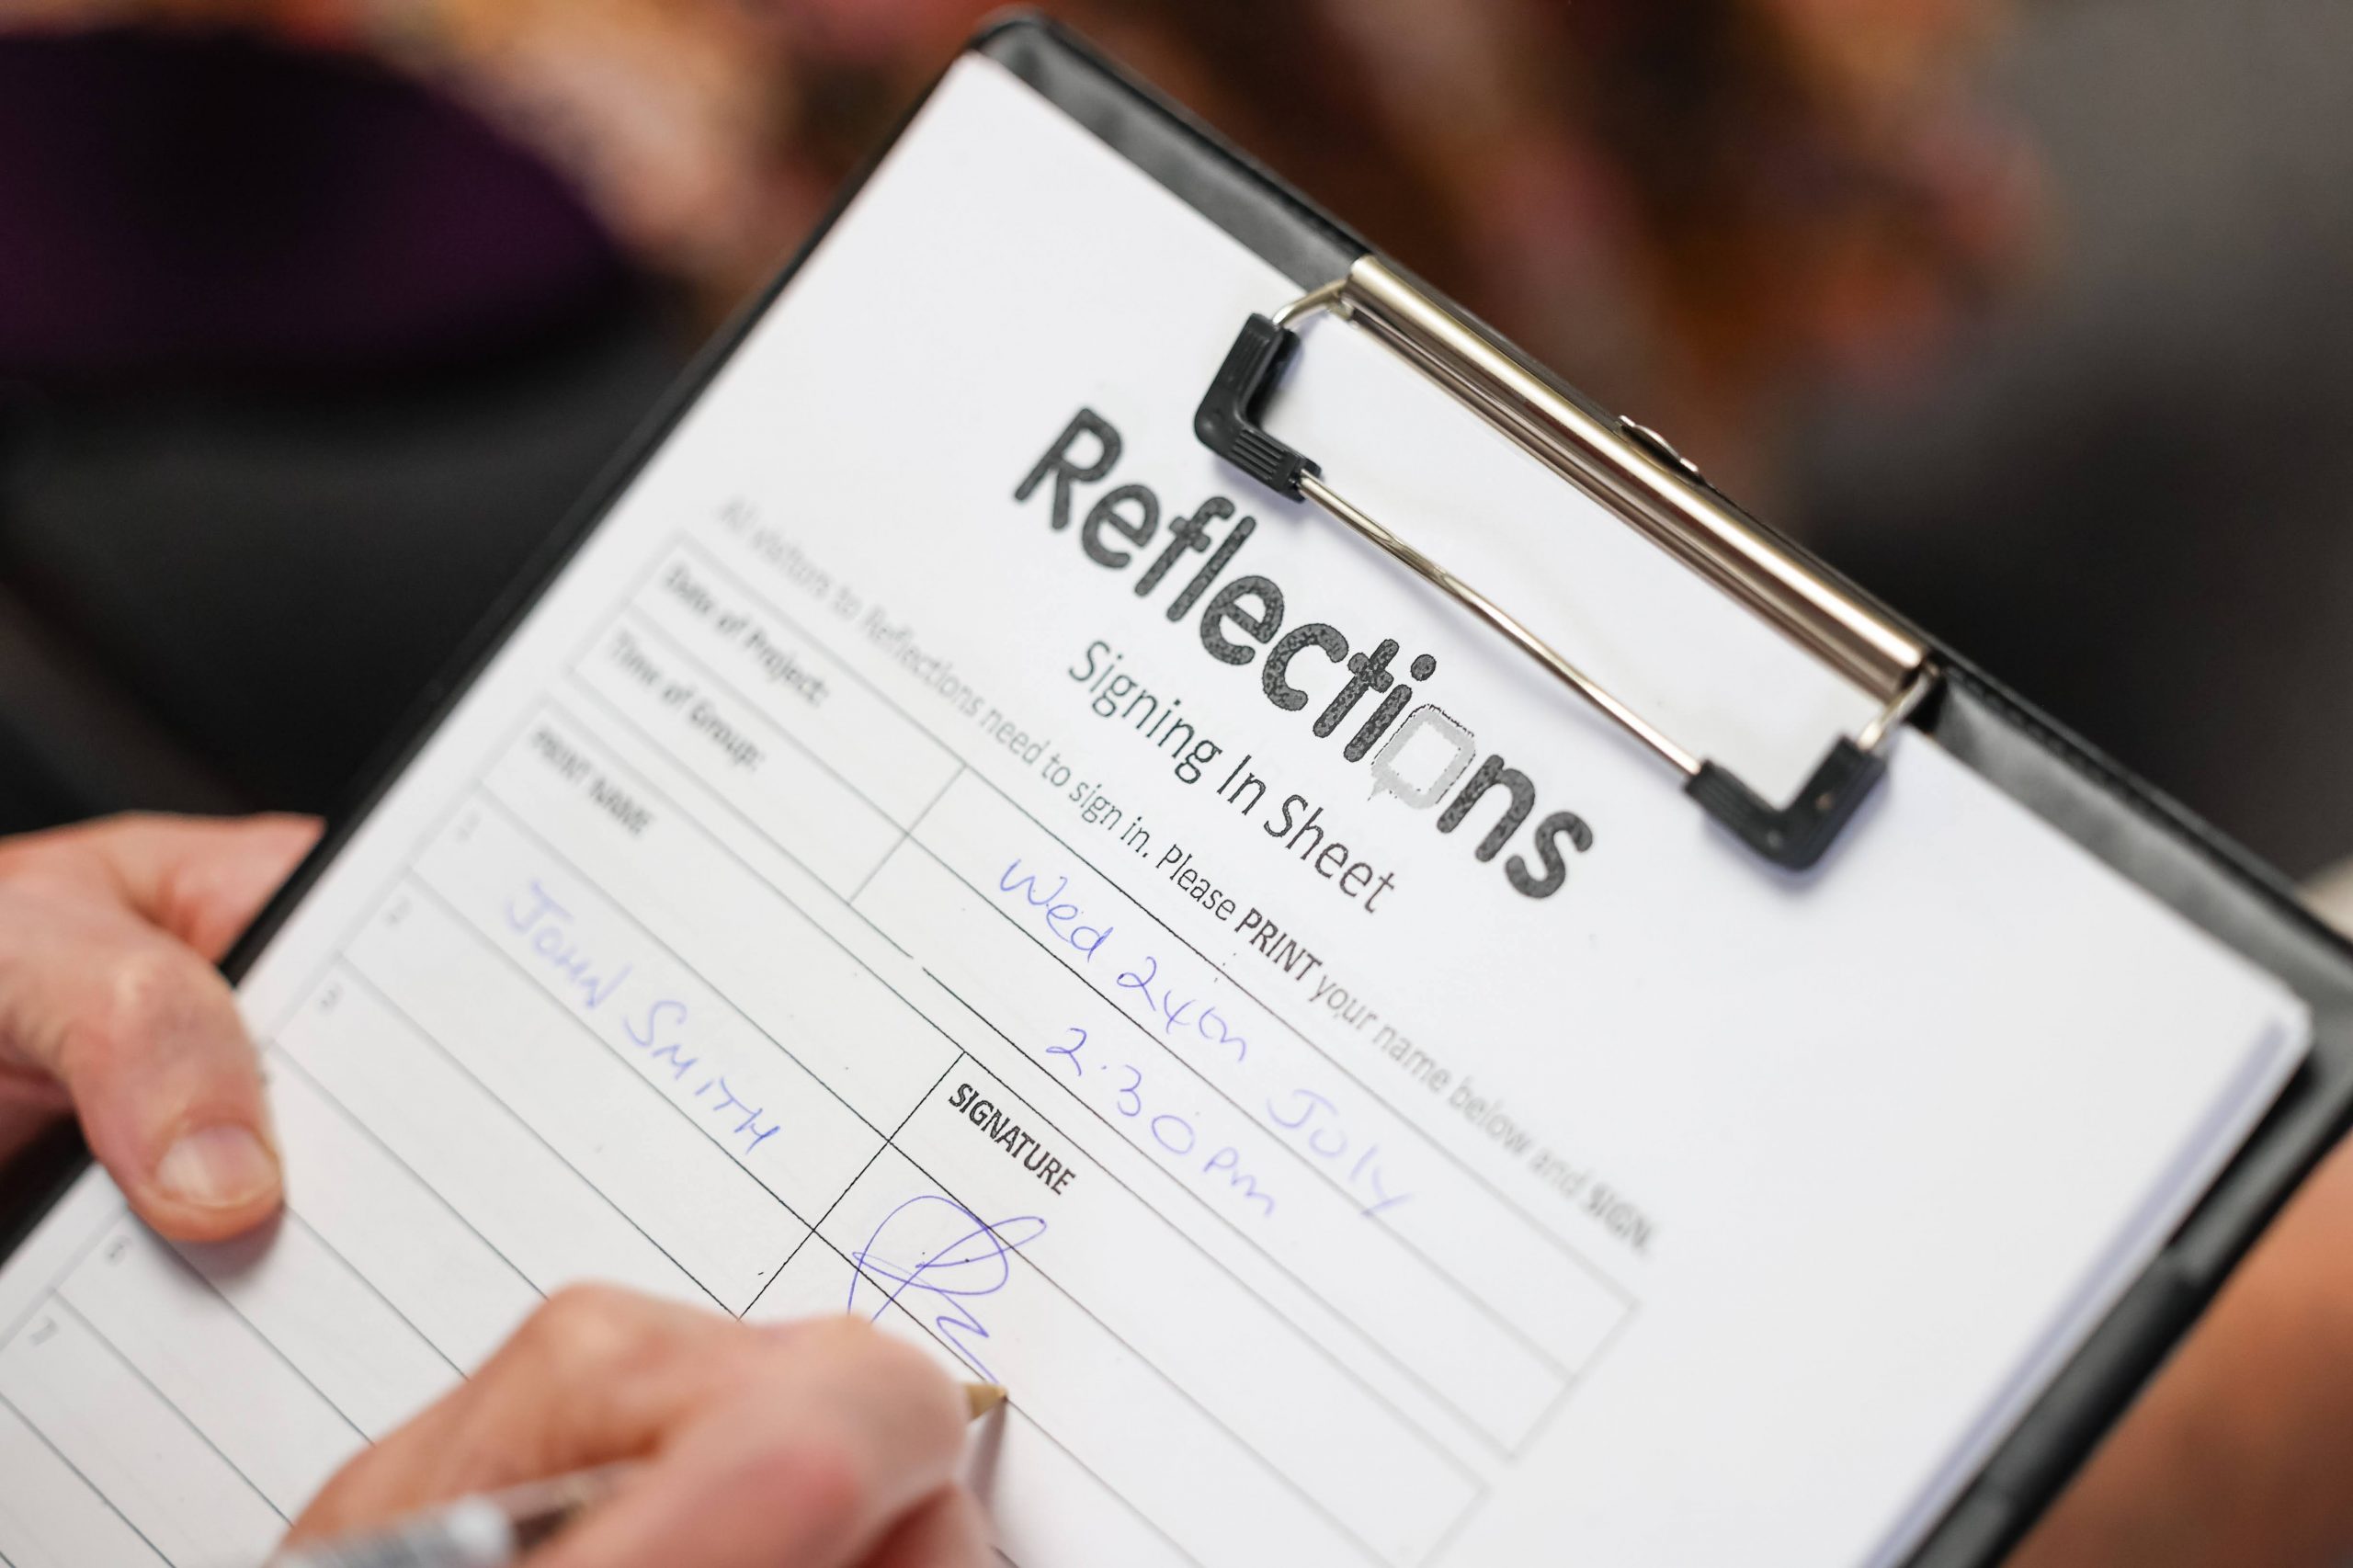 Reflections
Signing In Sheet
All visitors to Reflections need to sign in. Please PRINT your name below and SIGN.
Date of Project: Wed 24th July
Time of Group: 2.30pm
PRINT NAME SIGNATURE
1 JOHN SMITH
2
3
6
7